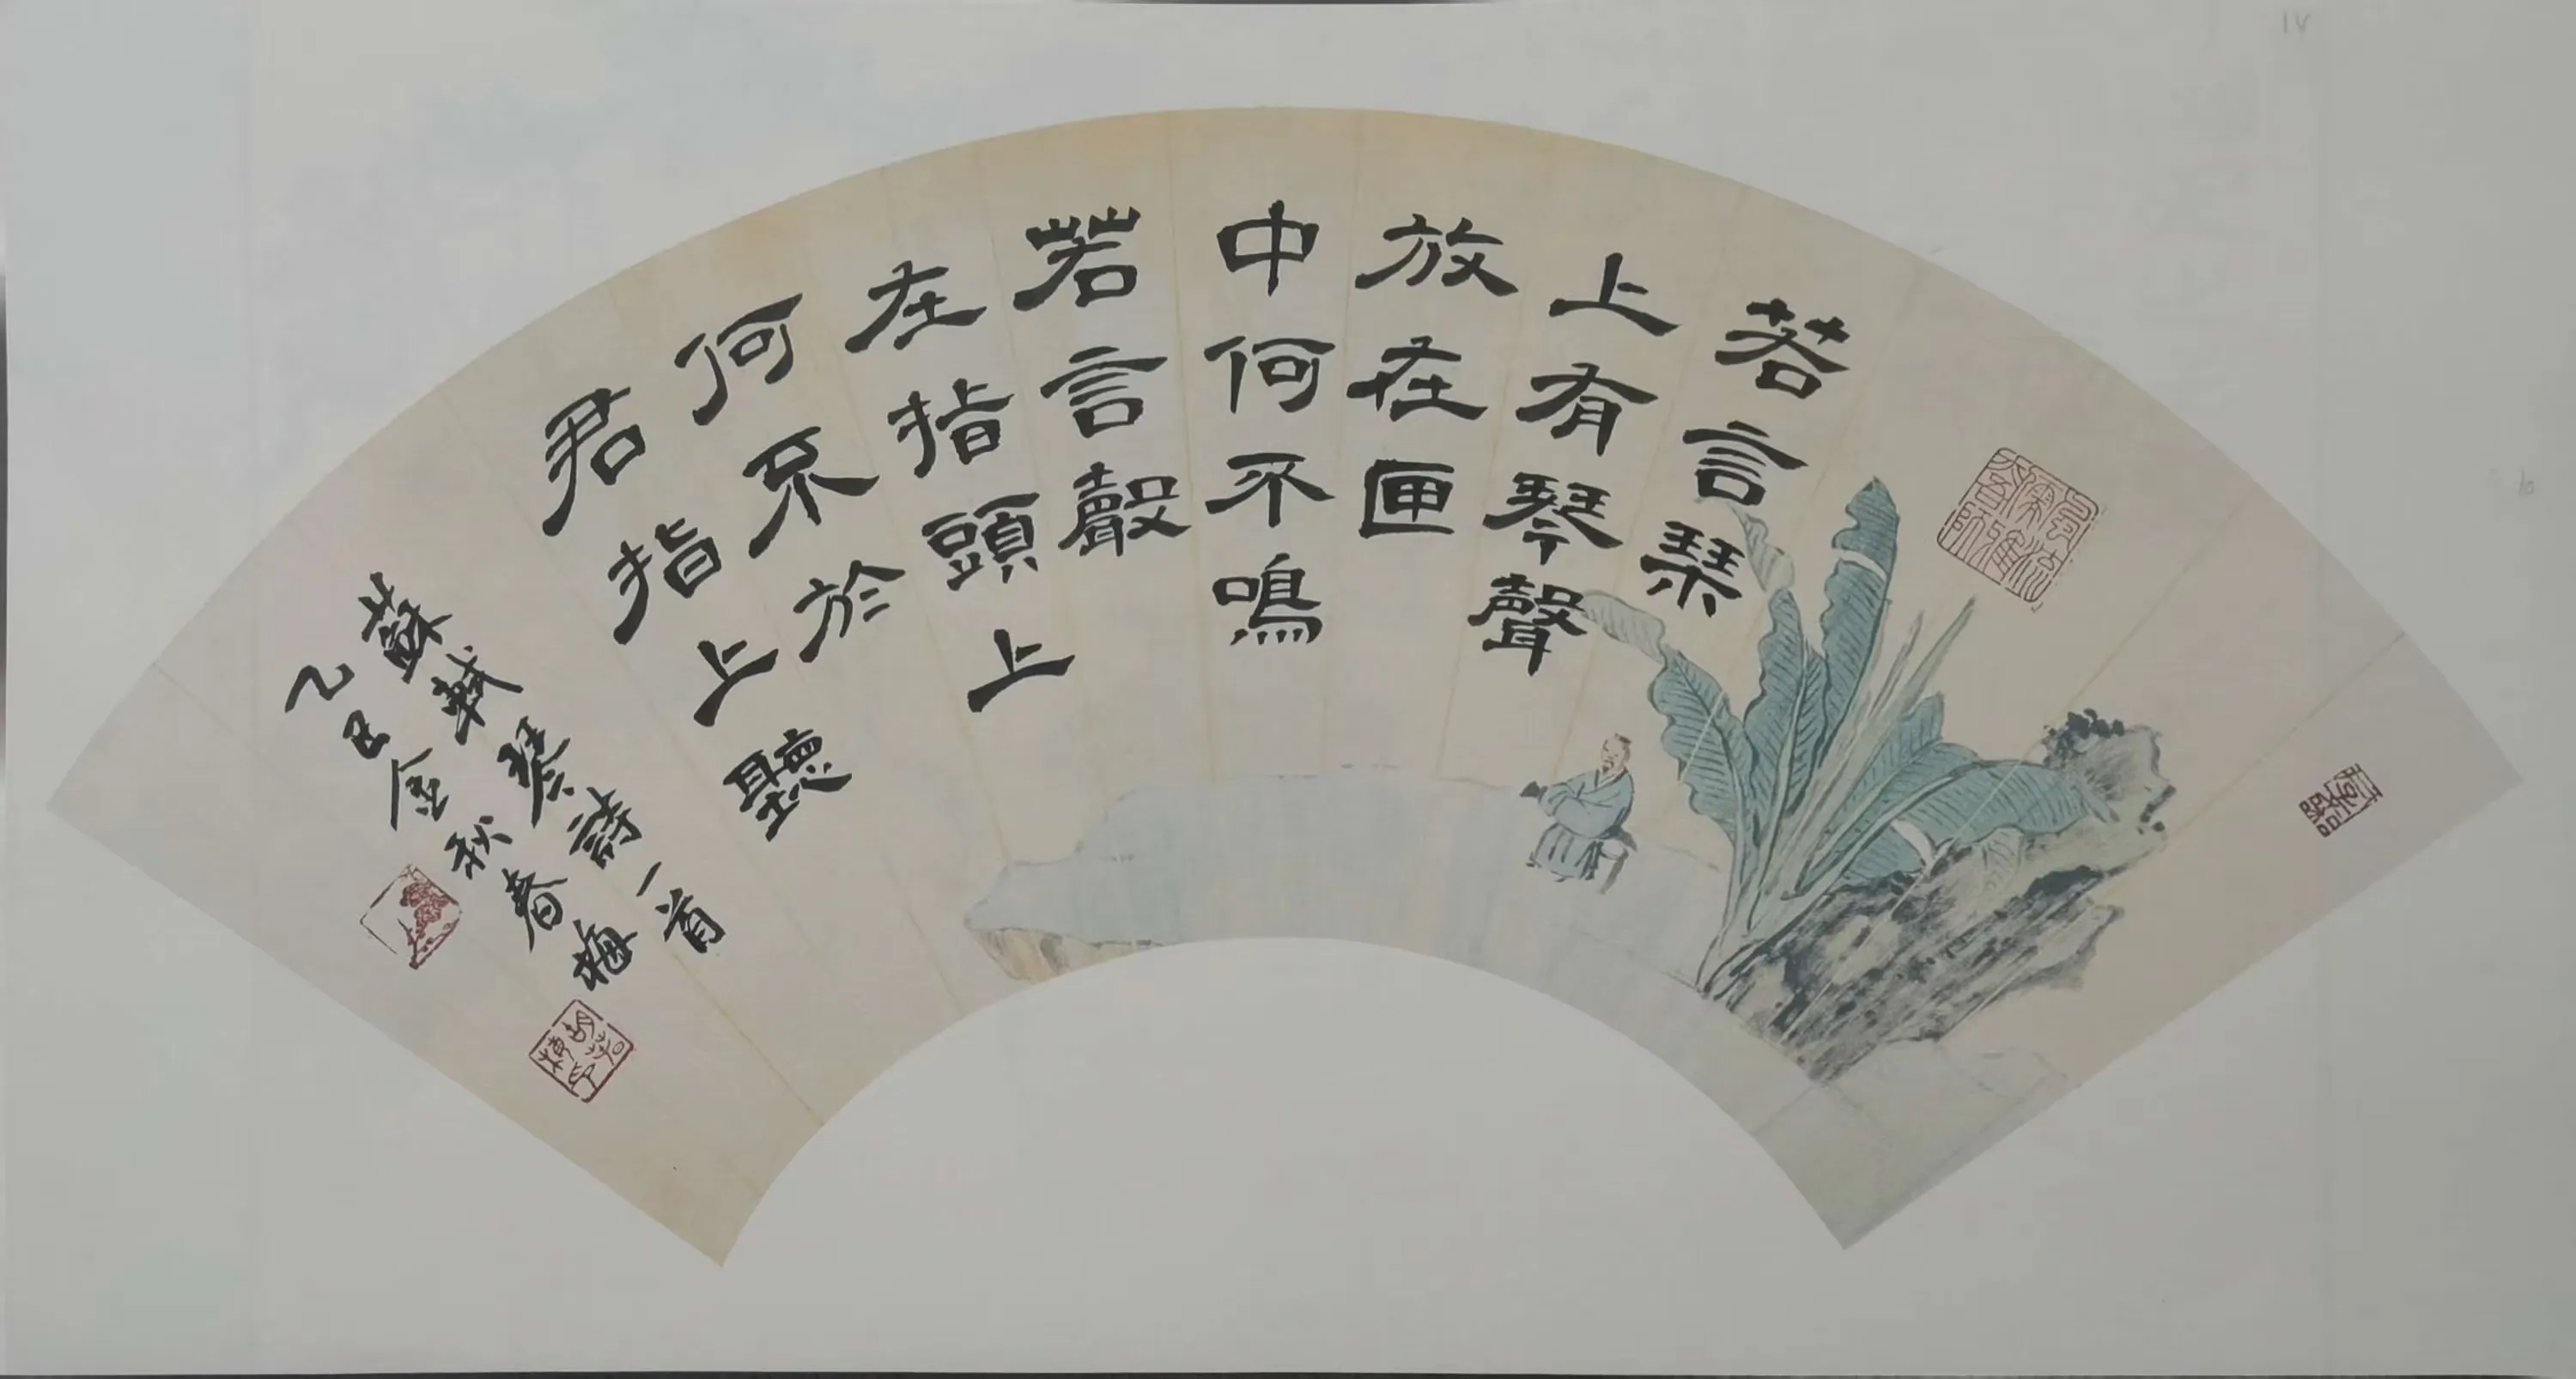 若言琹
上有琴聲
放在匣
中何不鳴
若言聲
在指頭上
何不於
君指上聽
蘇軾琴詩一首
乙巳金秋春梅